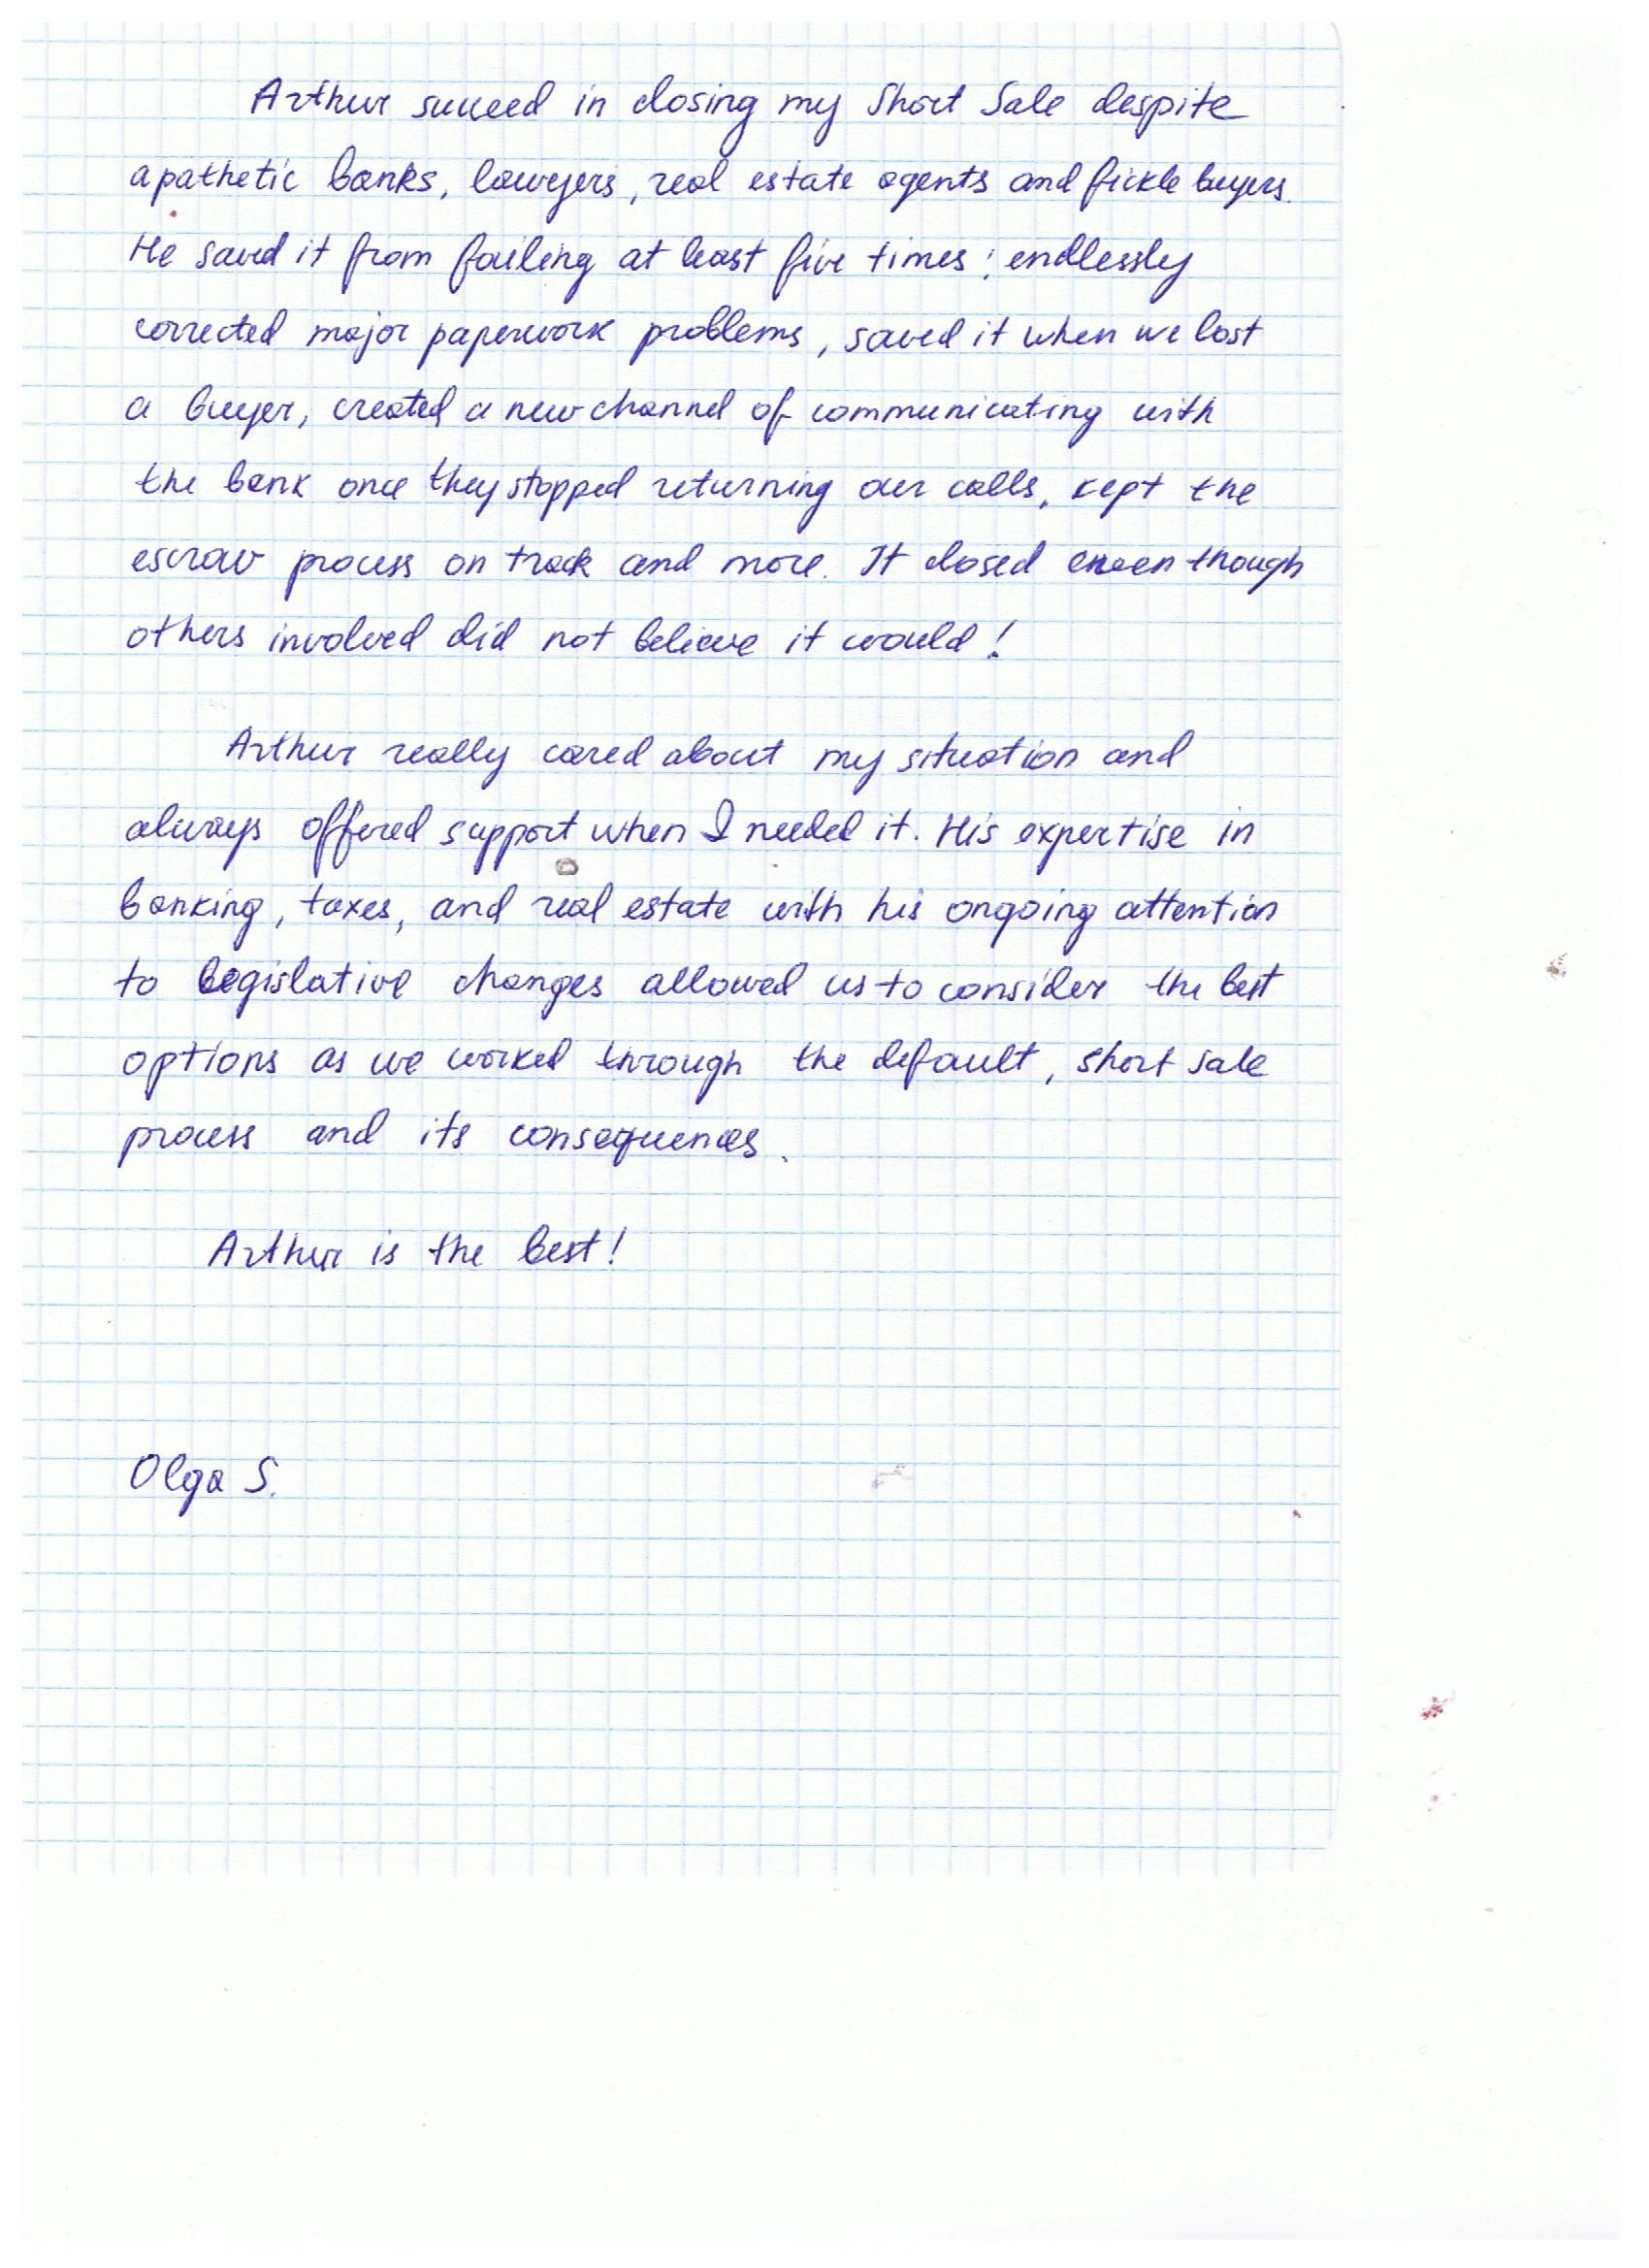 Arthur succeed in closing my Short Sale despite
apathetic banks, lawyers, real estate agents and fickle buyers.
He saved it from failing at least five times; endlessly
corrected major paperwork problems, saved it when we lost
a buyer, created a new channel of communicating with
the bank once they stopped returning our calls, kept the
escrow process on track and more. It closed even though
others involved did not believe it would!
Arthur really cared about my situation and
always offered support when I needed it. His expertise in
banking, taxes, and real estate with his ongoing attention
to legislative changes allowed us to consider the best
options as we worked through the default, short sale
process and its consequences.
Arthur is the best!
Olga S.